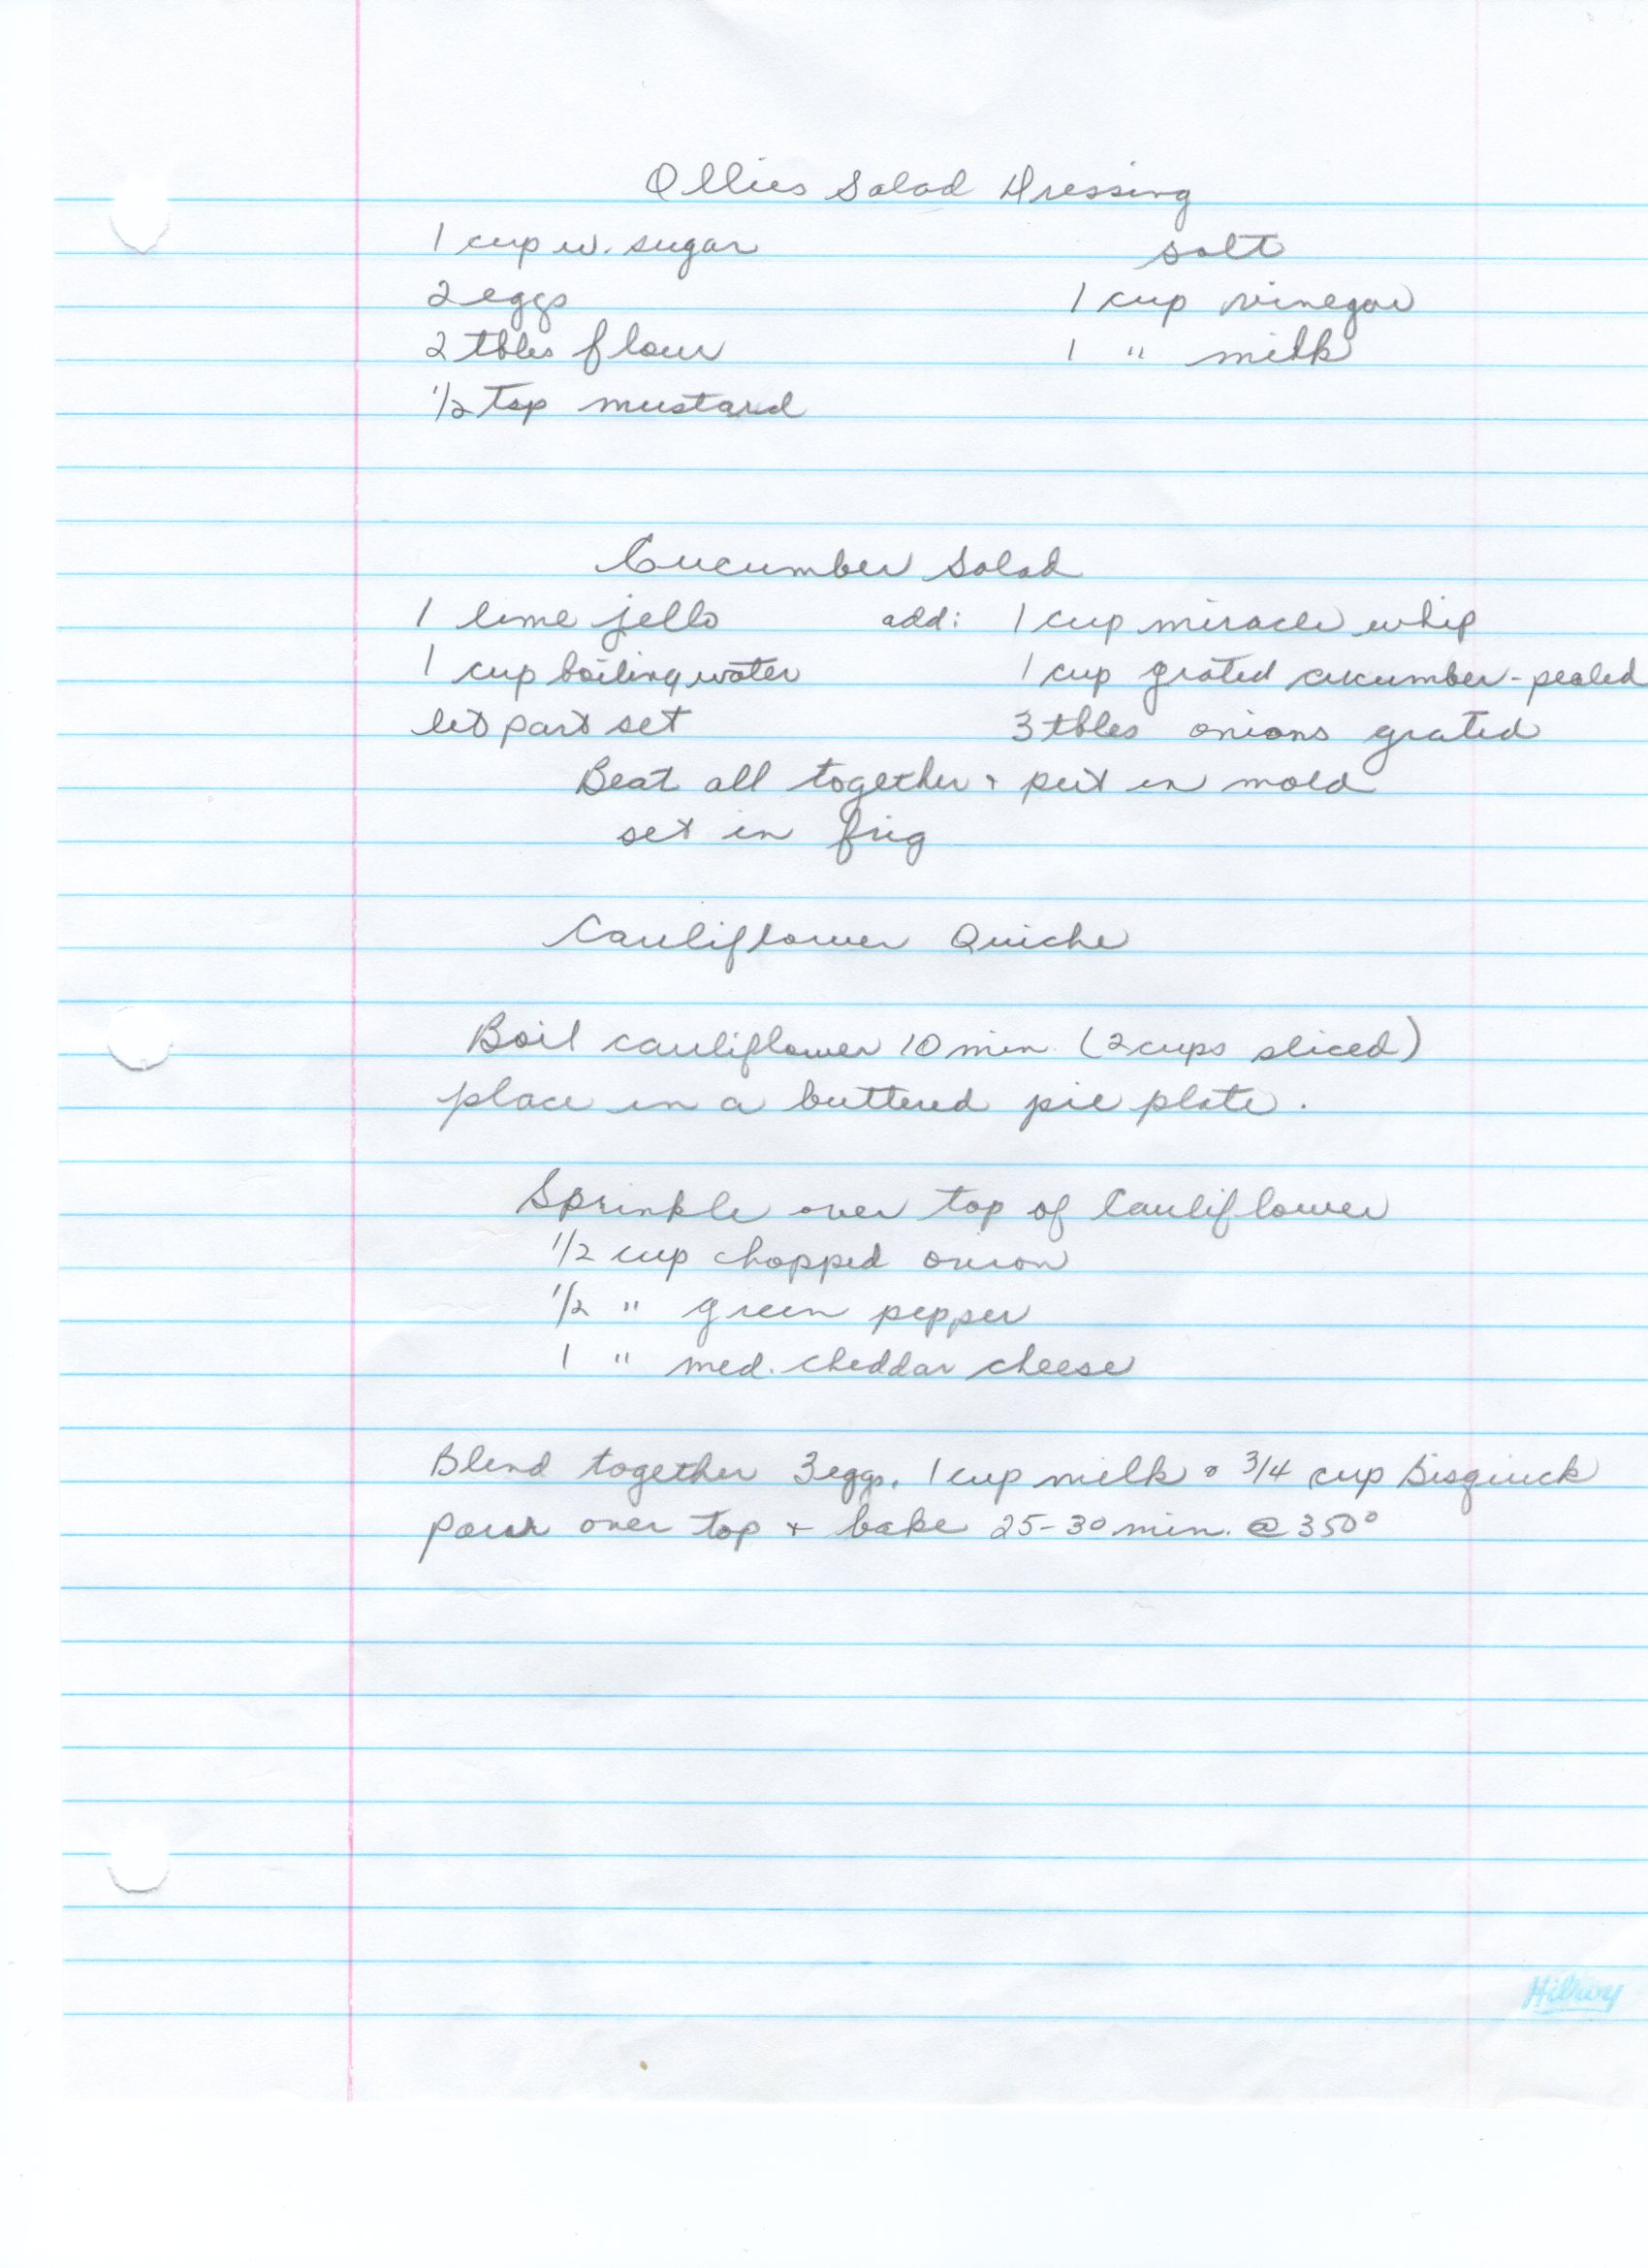 Ollies Salad Dressing
1 cup w. sugar salt
2 eggs 1 cup vinegar
2 tbles flour 1 " milk
1/2 tsp mustard
Cucumber Salad
1 lime jello add: 1 cup miracle whip
1 cup boiling water 1 cup grated cucumber - pealed
let part set 3 tbles onions grated
Beat all together + put in mold
set in frig
Cauliflower Quiche
Boil cauliflower 10 min. (2 cups sliced)
place in a buttered pie plate.
Sprinkle over top of Cauliflower
1/2 cup chopped onion
1/2 " green pepper
1 " med. cheddar cheese
Blend together 3 eggs, 1 cup milk & 3/4 cup Bisquick
pour over top + bake 25-30 min. @ 350°
Hilroy